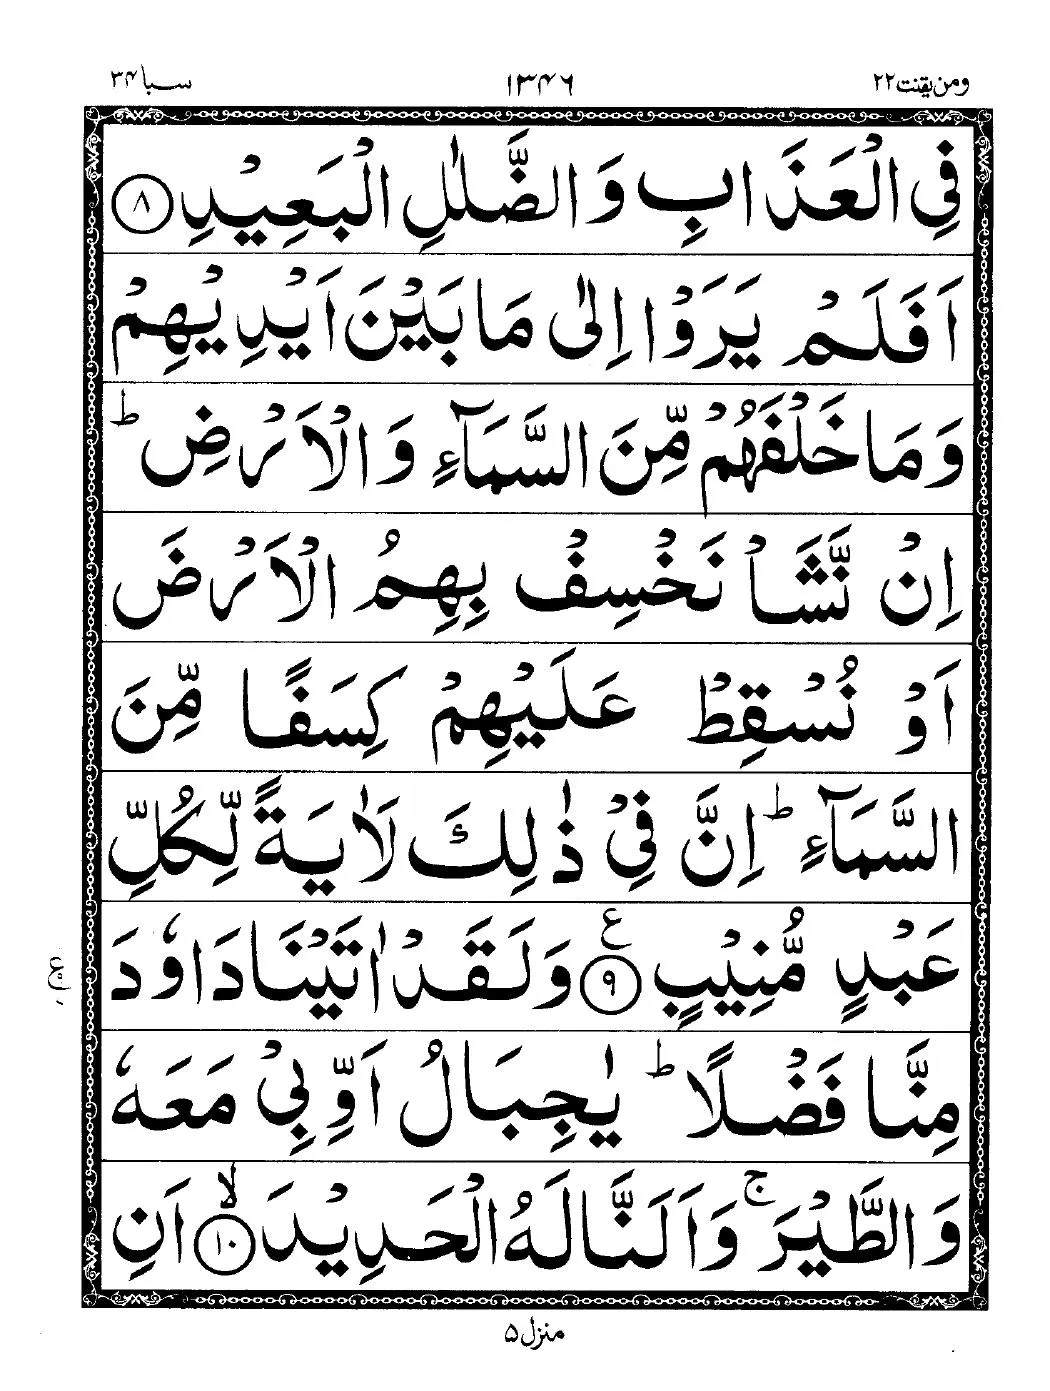 ومن یقنت ۲۲ ۱۳۴۶ سبا ۳۴
فِی الْعَذَابِ وَالضَّلٰلِ الْبَعِیْدِ ۸
اَفَلَمْ یَرَوْا اِلٰی مَا بَیْنَ اَیْدِیْهِمْ
وَمَا خَلْفَهُمْ مِّنَ السَّمَآءِ وَالْاَرْضِ ؕ
اِنْ نَّشَاْ نَخْسِفْ بِهِمُ الْاَرْضَ
اَوْ نُسْقِطْ عَلَیْهِمْ كِسَفًا مِّنَ
السَّمَآءِ ؕ اِنَّ فِیْ ذٰلِكَ لَاٰیَةً لِّكُلِّ
عَبْدٍ مُّنِیْبٍ ۹ ع وَلَقَدْ اٰتَیْنَا دَاوٗدَ
مِنَّا فَضْلًا ؕ یٰجِبَالُ اَوِّبِیْ مَعَهٗ
وَالطَّیْرَ ۚ وَاَلَنَّا لَهُ الْحَدِیْدَ ۱۰ ۙ اَنِ
منزل ۵